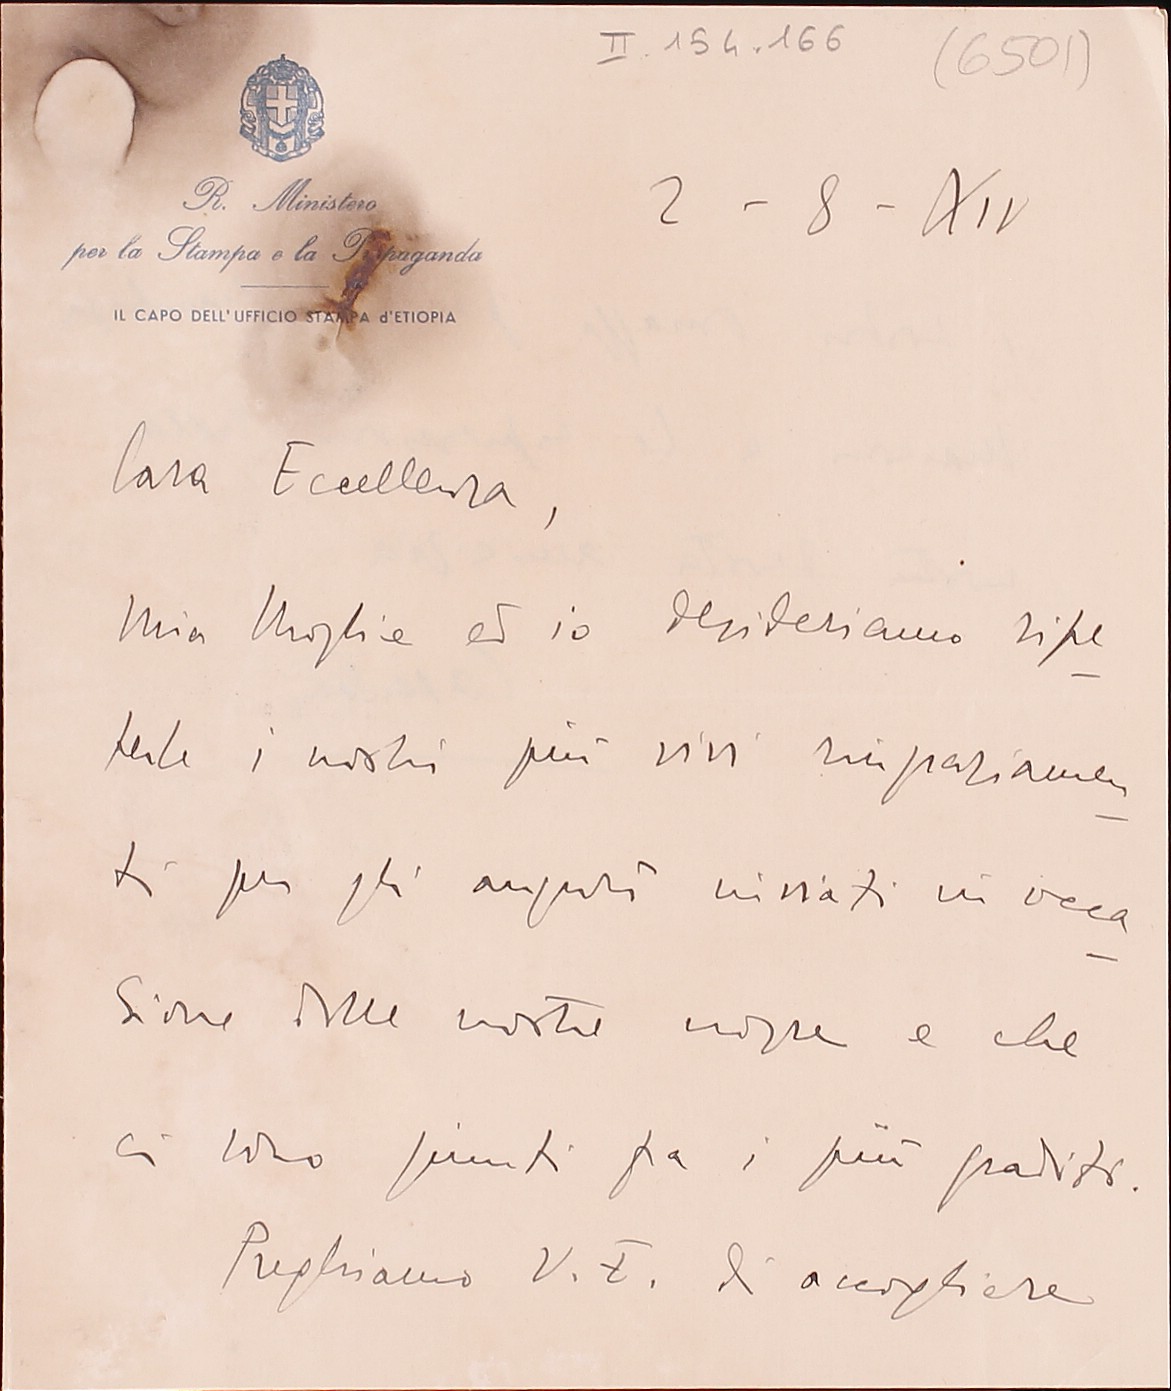 II.154.166
(6501)
R. Ministero
per la Stampa e la Propaganda
IL CAPO DELL'UFFICIO STAMPA d'ETIOPIA
2 - 8 - XIV
Cara Eccellenza,
Mia Moglie ed io desideriamo ripe
terle i nostri più vivi ringraziamen
ti per gli auguri inviati in occa
sione delle nostre nozze e che
ci sono giunti fra i più graditi.
Preghiamo V. E. di accogliere